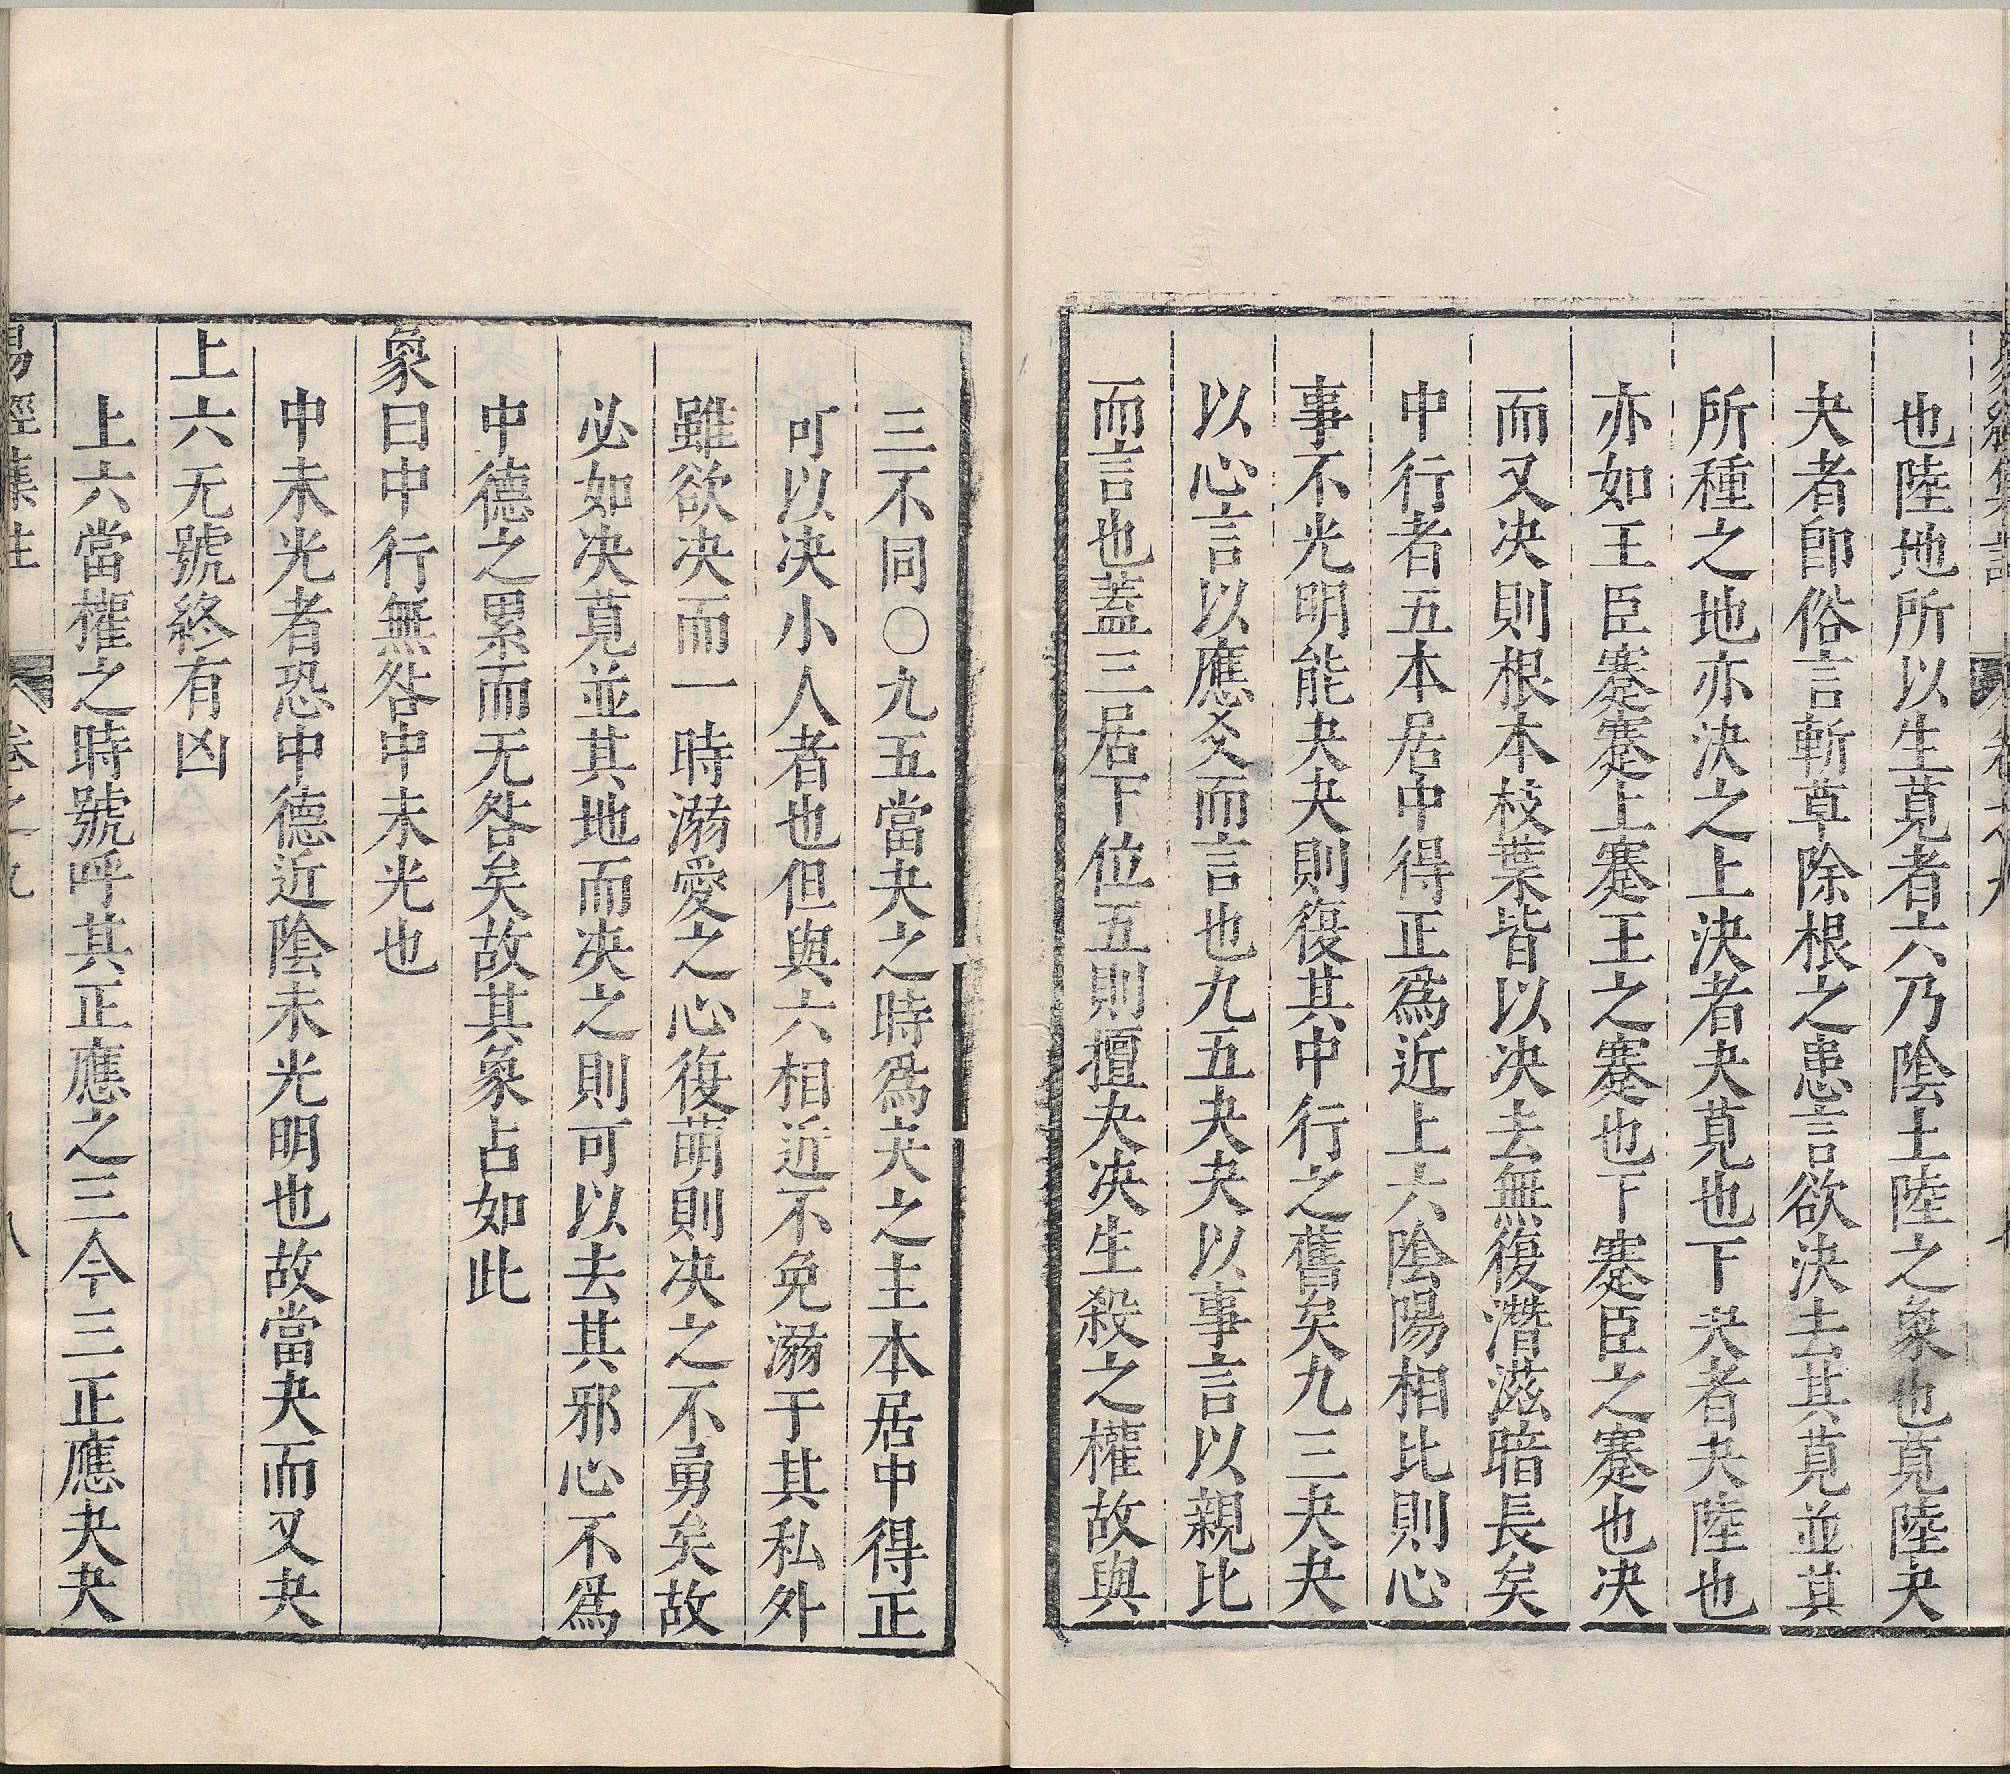 也陸地所以生莧者六乃陰土陸之象也莧陸夬
夬者即俗言斬草除根之患言欲決去其莧並其
所種之地亦決之上決者夬莧也下夬者夬陸也
亦如王臣蹇蹇上蹇王之蹇也下蹇臣之蹇也决
而又决則根本枝葉皆以决去無復潛滋暗長矣
中行者五本居中得正爲近上六陰陽相比則心
事不光明能夬夬則復其中行之舊矣九三夬夬
以心言以應爻而言也九五夬夬以事言以親比
而言也蓋三居下位五則擅夬决生殺之權故與
三不同○九五當夬之時爲夬之主本居中得正
可以决小人者也但與六相近不免溺于其私外
雖欲决而一時溺愛之心復萌則决之不勇矣故
必如决莧並其地而决之則可以去其邪心不爲
中德之累而无咎矣故其象占如此
象曰中行無咎中未光也
中未光者恐中德近陰未光明也故當夬而又夬
上六无號終有凶
上六當權之時號呼其正應之三今三正應夬夬
易經集註 卷之九 八